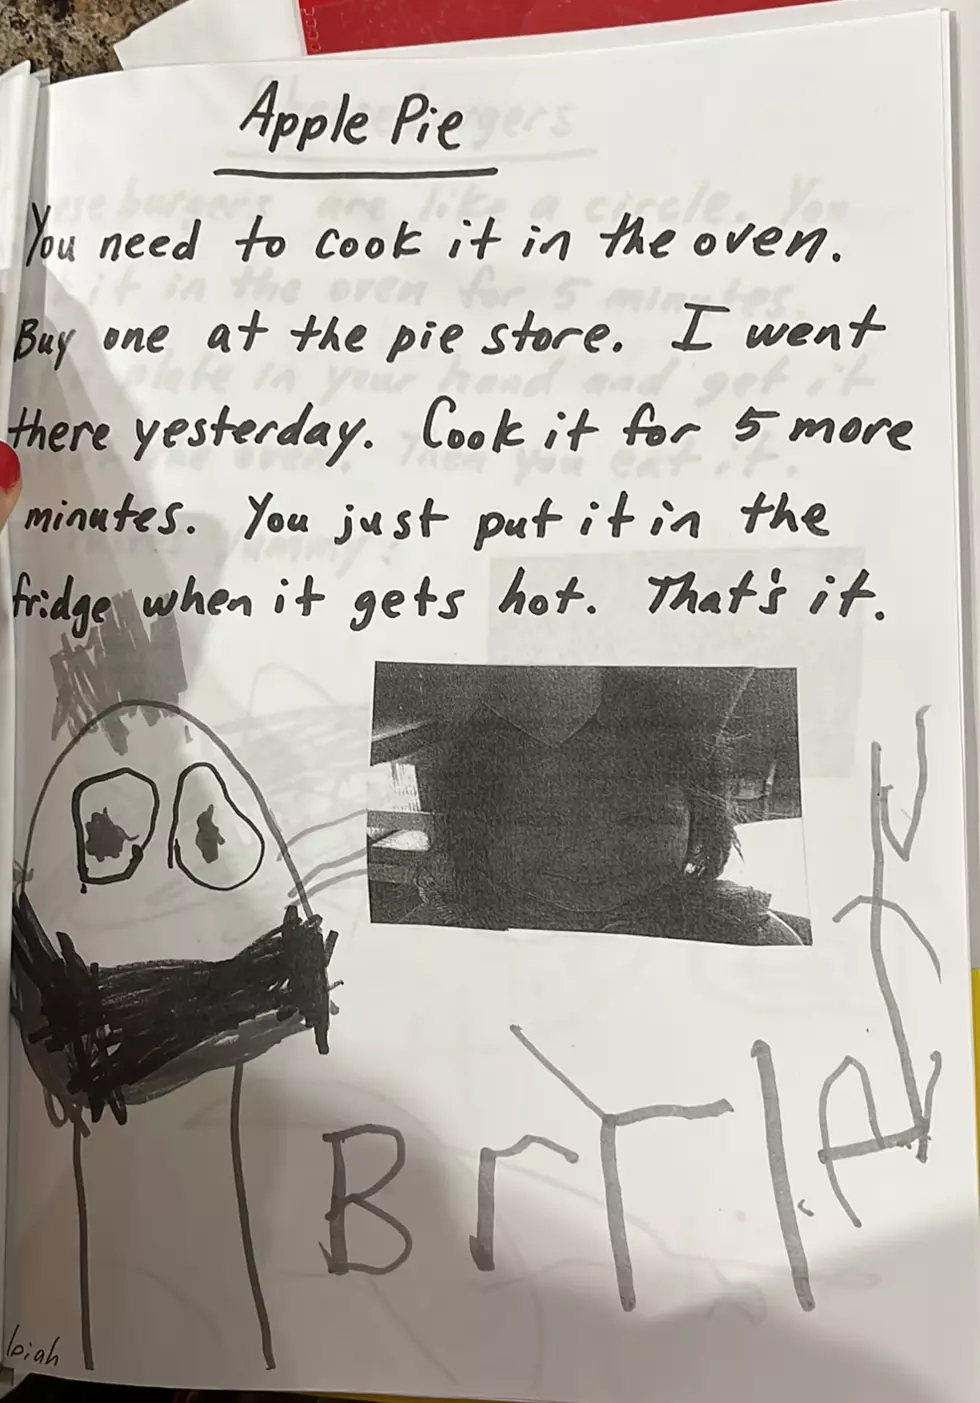 Apple Pie
You need to cook it in the oven.
Buy one at the pie store. I went
there yesterday. Cook it for 5 more
minutes. You just put it in the
fridge when it gets hot. That's it.